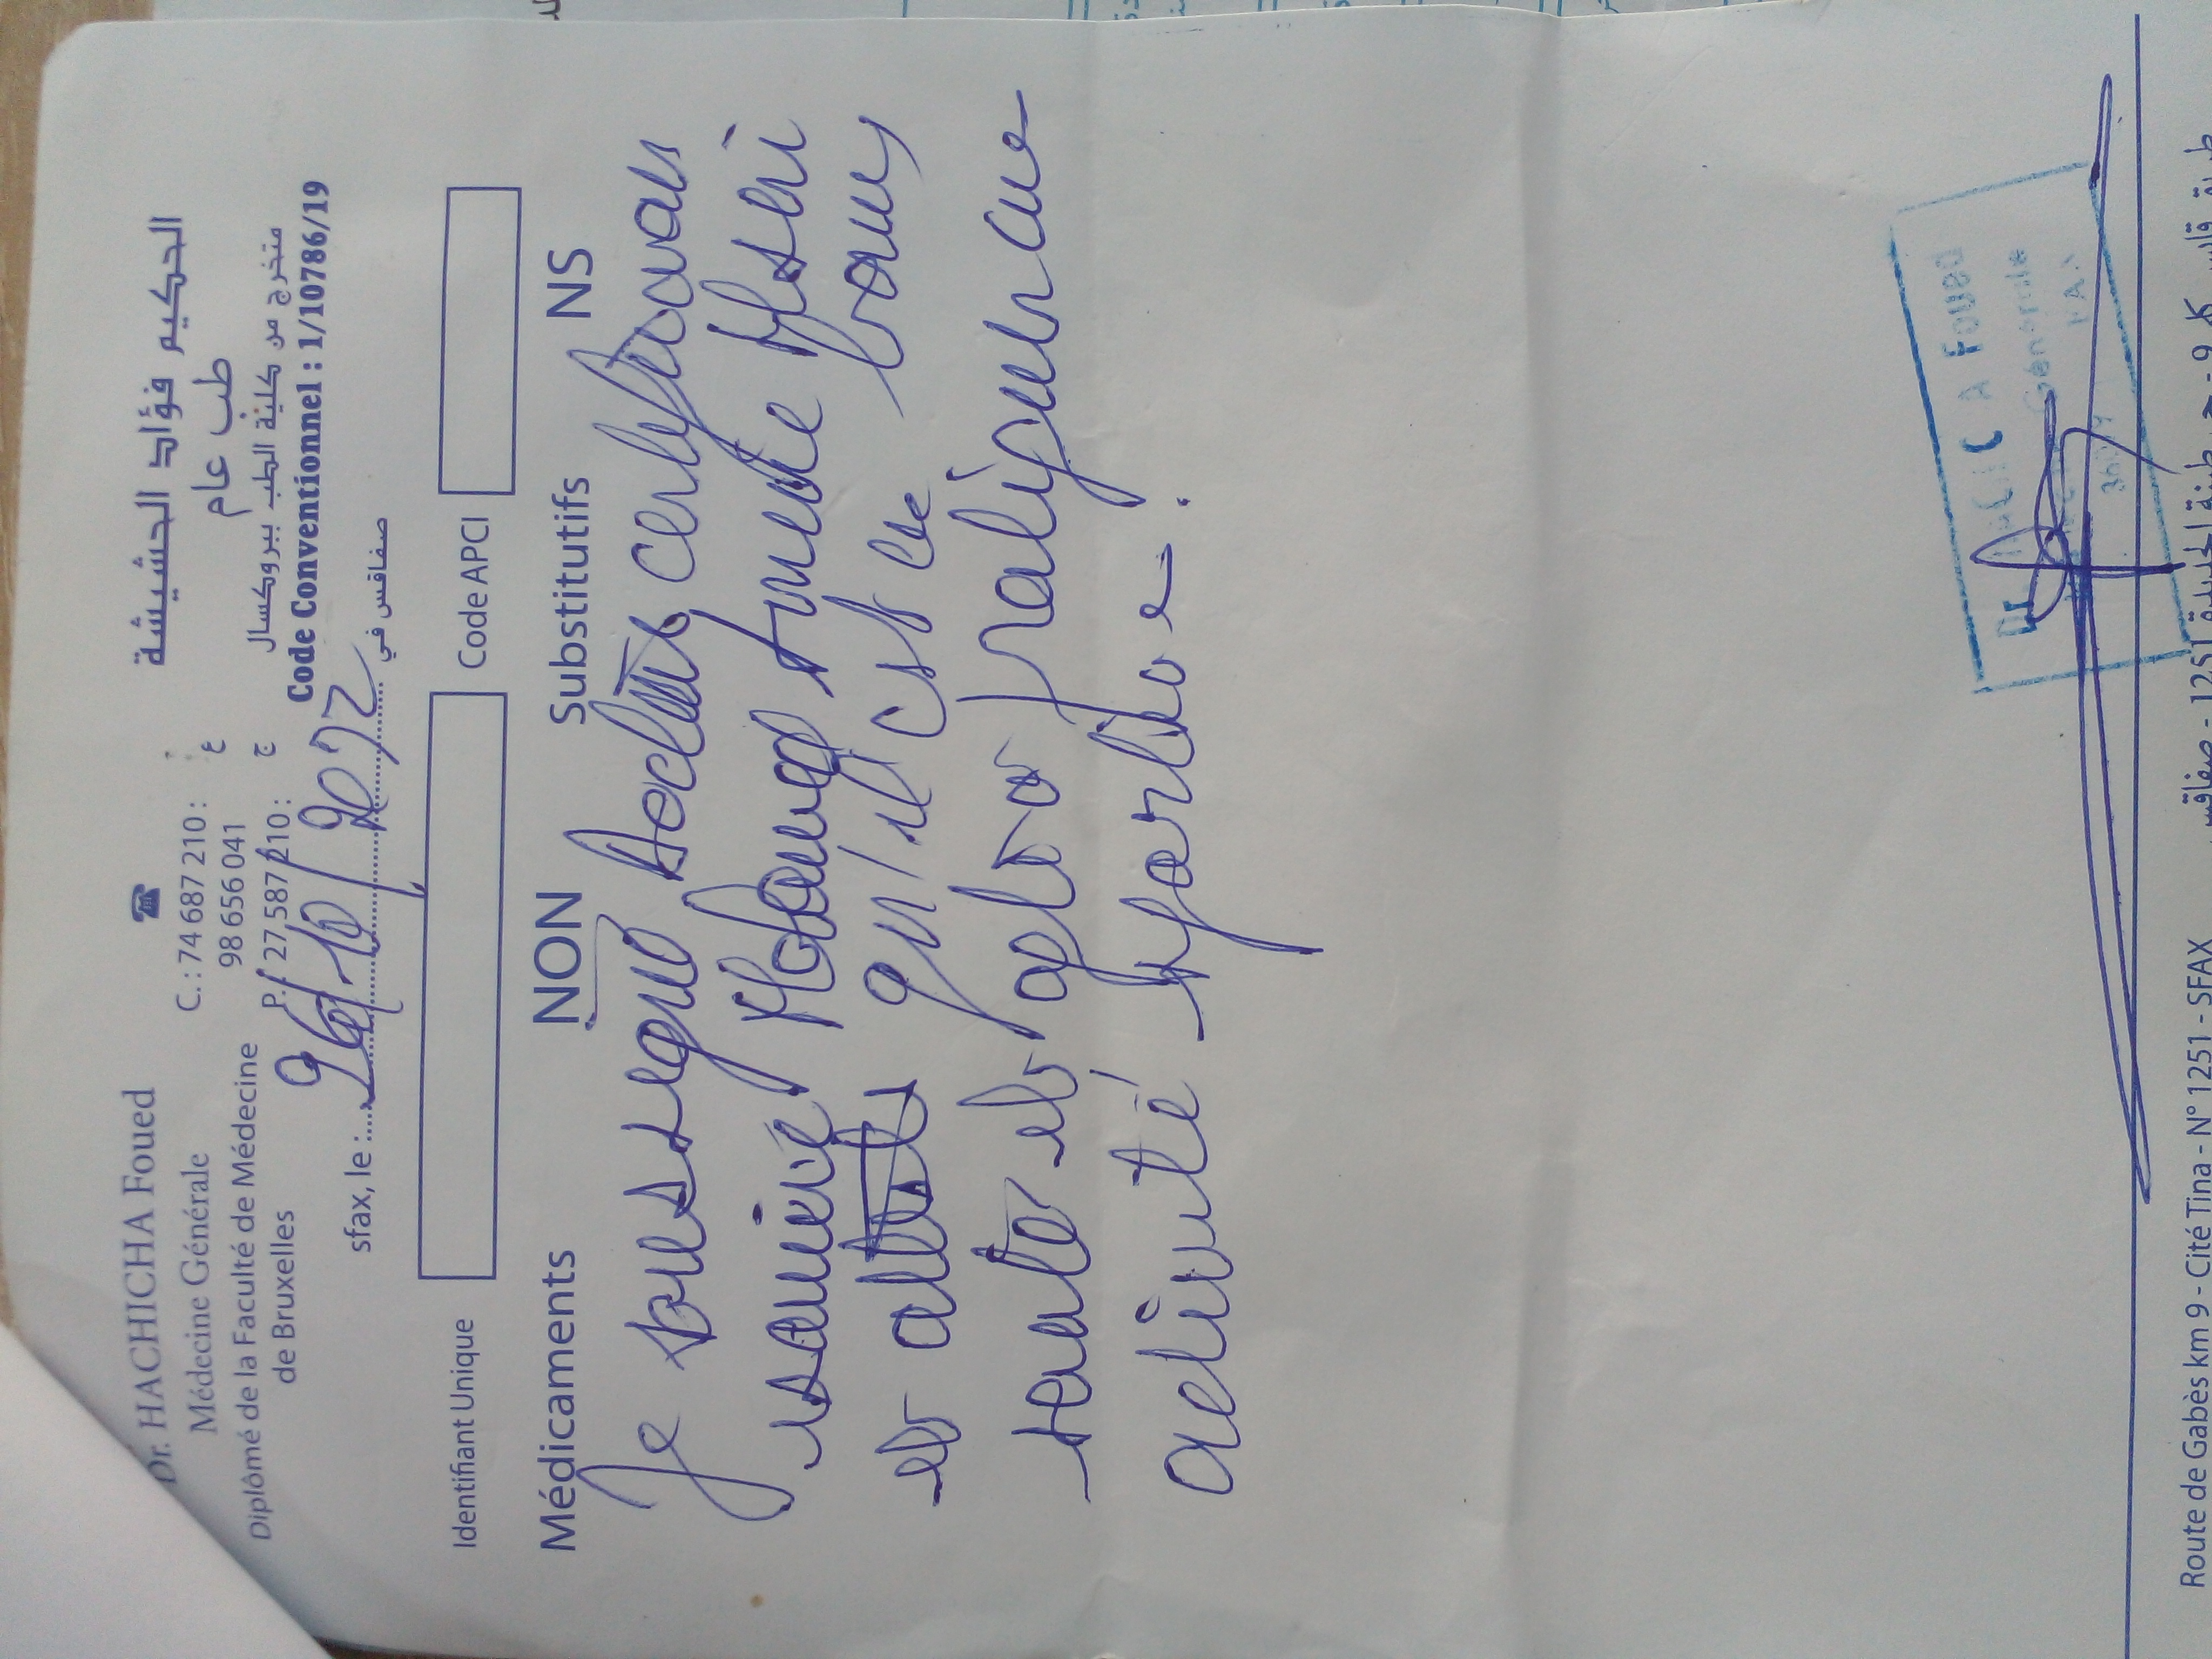 Dr. HACHICHA Foued
Médecine Générale
Diplômé de la Faculté de Médecine
de Bruxelles
C. : 74 687 210 :
98 656 041
P. : 27 587 210 :
الحكيم فؤاد الحشيشة
طب عام
متخرج من كلية الطب ببروكسال
Code Conventionnel : 1/10786/19
sfax, le : 26/10/2022 صفاقس في
Identifiant Unique
Code APCI
Médicaments NON Substitutifs NS
Je soussigné Docteur certifie avoir
examiné Mohamed Mseni
et qu'il est en bonne
santé et apte à pratiquer une
activité sportive.
Foued
Générale
Route de Gabès km 9 - Cité Tina - N° 1251 - SFAX